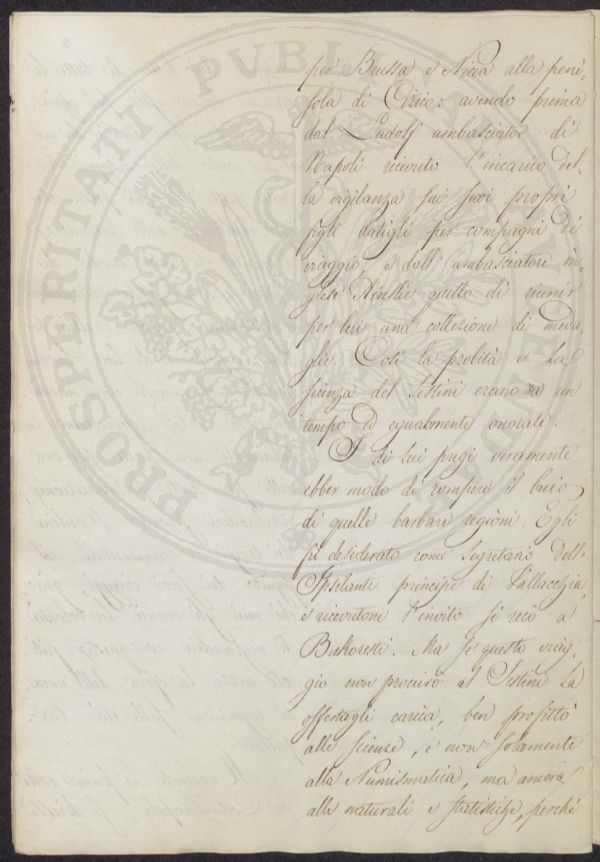 per Brussa e Nicea alla peni-
sola di Cizico: avendo prima
dal Ludolf ambasciator di
Napoli ricevuto l'incarico del-
la vigilanza sui suoi propri
figli datigli per compagni di
viaggio, e dall' ambasciatore in-
glese Ainslie quello di riunir
per lui una collezione di meda
glie. Così la probità e la
scienza del Sestini erano a un
tempo ed egualmente onorate.
I di lui pregi veramente
ebber modo di rompere il buio
di quelle barbare regioni. Egli
fu desiderato come segretario dell'
Ipsilanti principe di Vallacchia,
e ricevutone l'invito si recò a
Bukoresti. Ma se questo viag-
gio non procurò al Sestini la
offertagli carica, ben profittò
alle scienze, e non solamente
alla Numismatica, ma ancora
alle naturali e statistiche, perchè
PROSPERITATI PVBLICAE